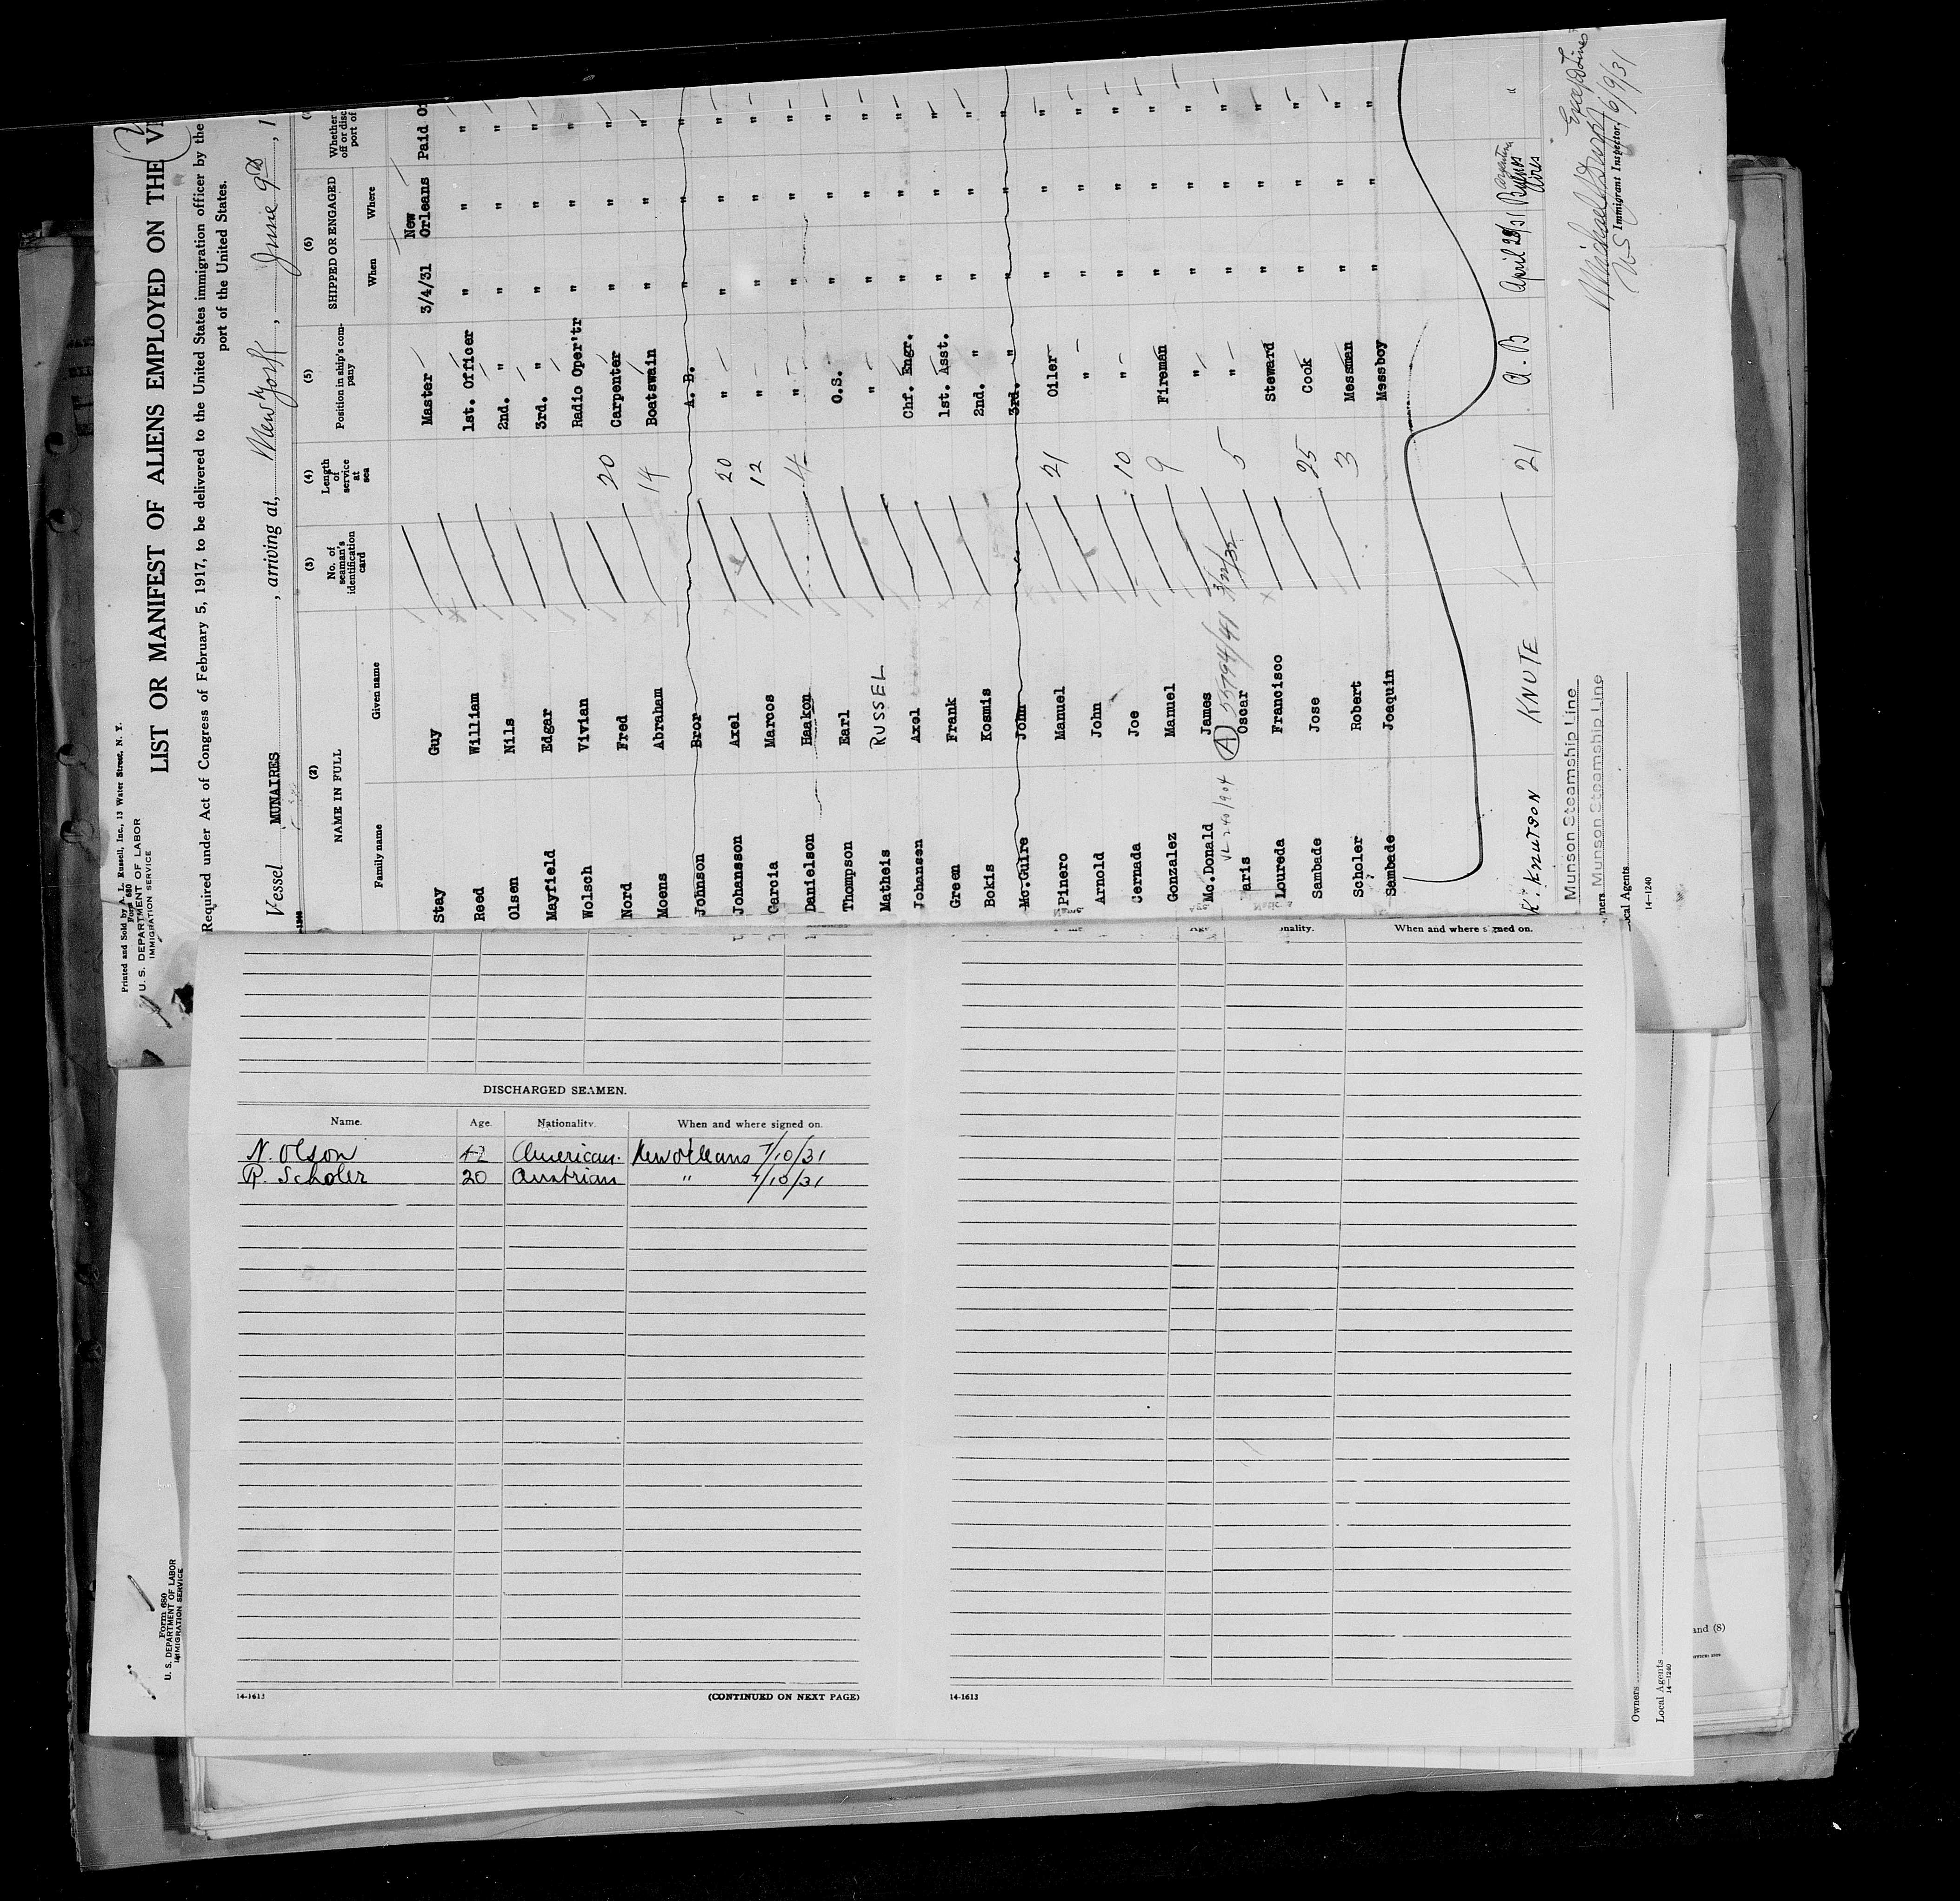 Printed and Sold by A. L. Russell, Inc., 13 Water Street, N. Y.
Form 680
U. S. DEPARTMENT OF LABOR
IMMIGRATION SERVICE
LIST OR MANIFEST OF ALIENS EMPLOYED ON THE
Required under Act of Congress of February 5, 1917, to be delivered to the United States immigration officer by the
port of the United States.
Vessel MUNAIRES, arriving at, New York, June 9th, 1
(2) NAME IN FULL (3) No. of seaman's identification card (4) Length of service at sea (5) Position in ship's company (6) SHIPPED OR ENGAGED Whether off or disc port of
Family name Given name When Where
Stay Guy Master 3/4/31 New Orleans Paid
Reed William 1st. Officer " " "
Olsen Nils 2nd. " " " "
Mayfield Edgar 3rd. " " " "
Wolsch Vivian Radio Oper'tr " " "
Nord Fred 20 Carpenter " " "
Moens Abraham 14 Boatswain " " "
Johnson Bror A. B. " " "
Johansson Axel 20 " " " "
Garcia Marcos 12 " " " "
Danielson Haakon 4 " " " "
Thompson Earl O.S. " " "
Matheis RUSSEL " " " "
Johansen Axel Chf. Engr. " " "
Green Frank 1st. Asst. " " "
Bokis Kosmis 2nd. " " " "
Mc.Guire John 3rd. " " " "
Pinero Manuel 21 Oiler " " "
Arnold John " " " "
Cernada Joe 10 " " " "
Gonzalez Manuel 9 Fireman " " "
Mc.Donald James " " " "
VL 240/904 (A) 55794/491 3/22/32
Paris Oscar 5 " " " "
Loureda Francisco Steward " " "
Sambade Jose 25 Cook " " "
Scholer Robert 3 Messman " " "
Sambade Joaquin Messboy " " "
K. KNUTSON KNUTE 21 A. B April 28/31 Buenos Aires Argentina "
Munson Steamship Line
Owners Munson Steamship Line
Local Agents
14-1240
U S Immigrant Inspector. 6/9/31
Name. Age. Nationality. When and where signed on.
DISCHARGED SEAMEN.
Name. Age. Nationality. When and where signed on.
N. Olson 42 American. New Orleans 7/10/31
R. Scholer 20 Austrian " 7/10/31
14-1613
(CONTINUED ON NEXT PAGE)
14-1613
Form 680
U. S. DEPARTMENT OF LABOR
IMMIGRATION SERVICE
Owners
Local Agents
14-1240
and (8)